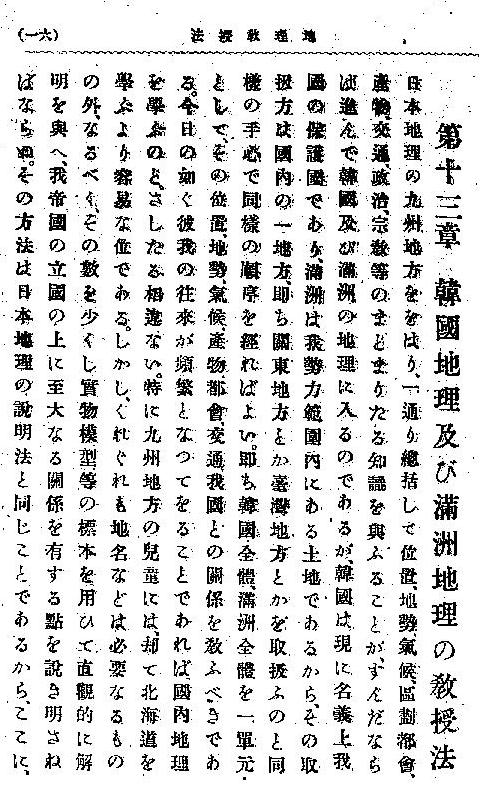 地理教授法
(一六)
第十三章　韓國地理及び滿洲地理の敎授法
日本地理の九州地方ををはり、一通り總括して位置、地勢、氣候、區劃都會、
產物、交通、政治、宗敎等のまとまりたる知識を與ふることが、すんだなら
ば進んで韓國及び滿洲の地理に入るのであるが、韓國は現に名義上我
國の保護國であり、滿洲は我勢力範圍內にある土地であるから、その取
扱方は國內の一地方、即ち關東地方とか臺灣地方とかを取扱ふのと同
樣の手心で同樣の順序を經ればよい。即ち韓國全體、滿洲全體を一單元
として、その位置、地勢、氣候、產物都會、交通我國との關係を敎ふべきであ
る。今日の如く彼我の往來が頻繁となつてをることであれば國內地理
を學ぶのと、さしたる相違ない。特に九州地方の兒童には、却て北海道を
學ぶより容易な位である。しかし、くれぐれも地名などは必要なるもの
の外、なるべく、その數を少くし實物模型等の標本を用ひて直觀的に解
明を與へ、我帝國の立國の上に至大なる關係を有する點を說き明さね
ばならぬ。その方法は日本地理の說明法と同じことであるから、ここに、